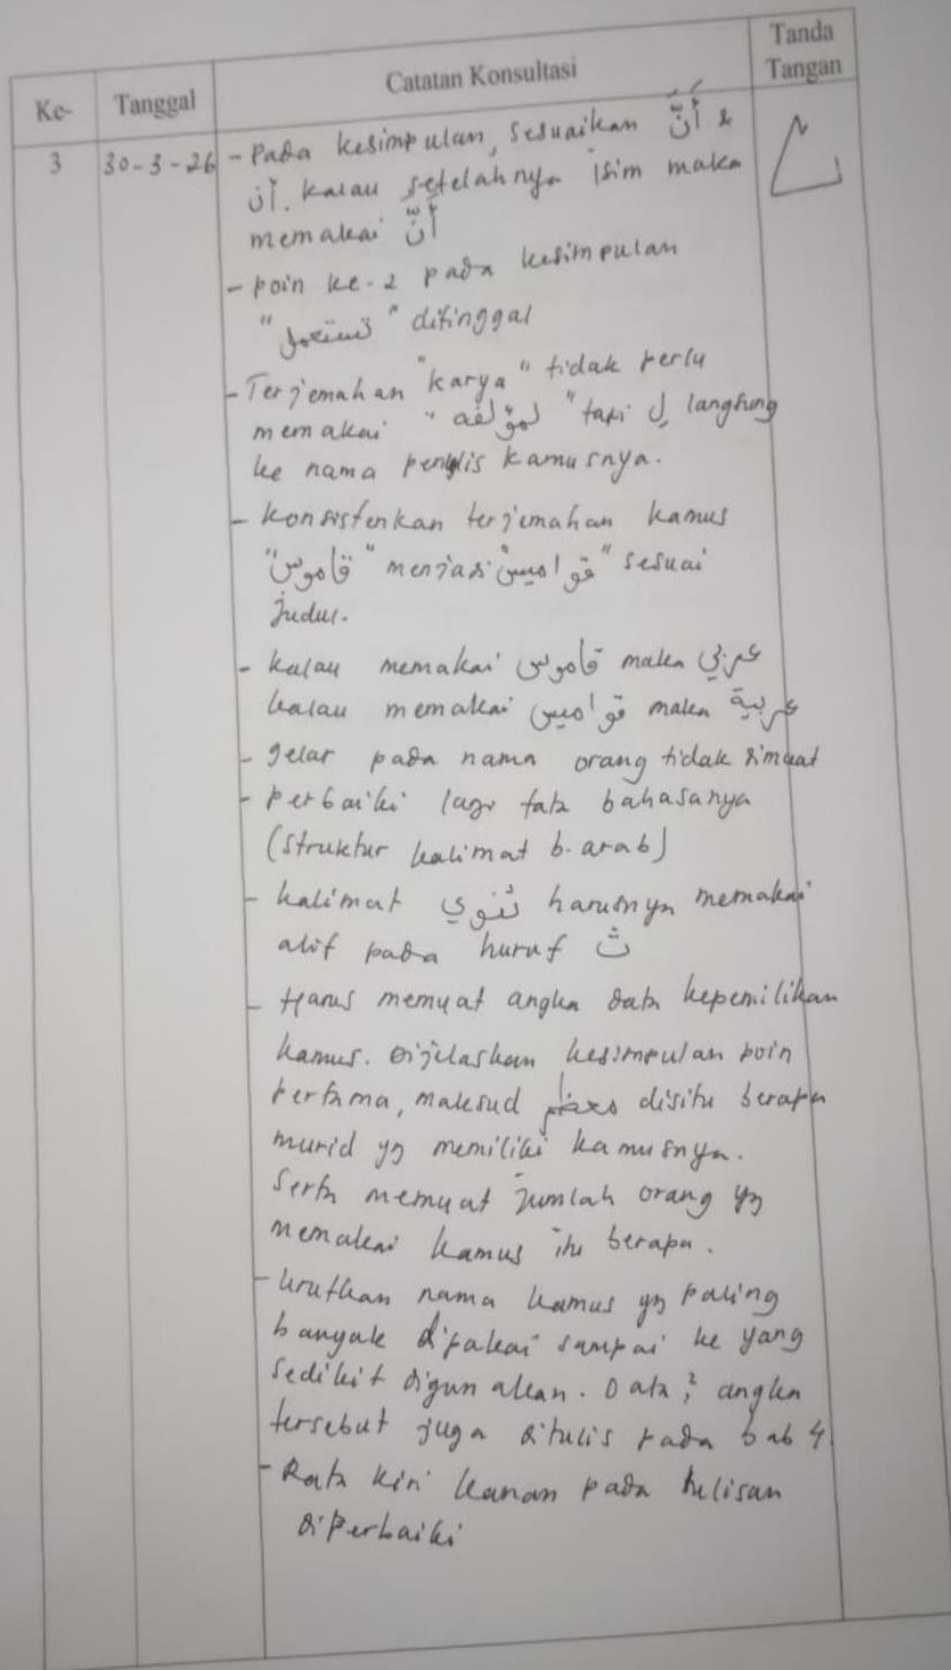 Ke- Tanggal Catatan Konsultasi Tanda Tangan
3 30-3-26 - Pada kesimpulan, sesuaikan أَنَّ &
أن. kalau setelahnya isim maka
memakai أَنّ
- poin ke-2 pada kesimpulan
"تستعمل" ditinggal
- Terjemahan "karya" tidak perlu
memakai "لمؤلفه" tapi لِ langsung
ke nama penulis kamusnya.
- konsistenkan terjemahan kamus
"قاموس" menjadi "قواميس" sesuai
judul.
- kalau memakai قاموس maka عربي
kalau memakai قواميس maka عربية
- gelar pada nama orang tidak dimuat
- perbaiki lagi tata bahasanya
(struktur kalimat b. arab)
- kalimat ثنوي harusnya memakai
alif pada huruf ث
- Harus memuat angka data kepemilikan
kamus. Dijelaskan kesimpulan poin
pertama, maksud معظم disitu berapa
murid yg memiliki kamusnya.
Serta memuat jumlah orang yg
memakai kamus itu berapa.
- Urutkan nama kamus yg paling
banyak dipakai sampai ke yang
sedikit digunakan. Data² angka
tersebut juga ditulis pada bab 4
- Rata kiri kanan pada tulisan
diperbaiki